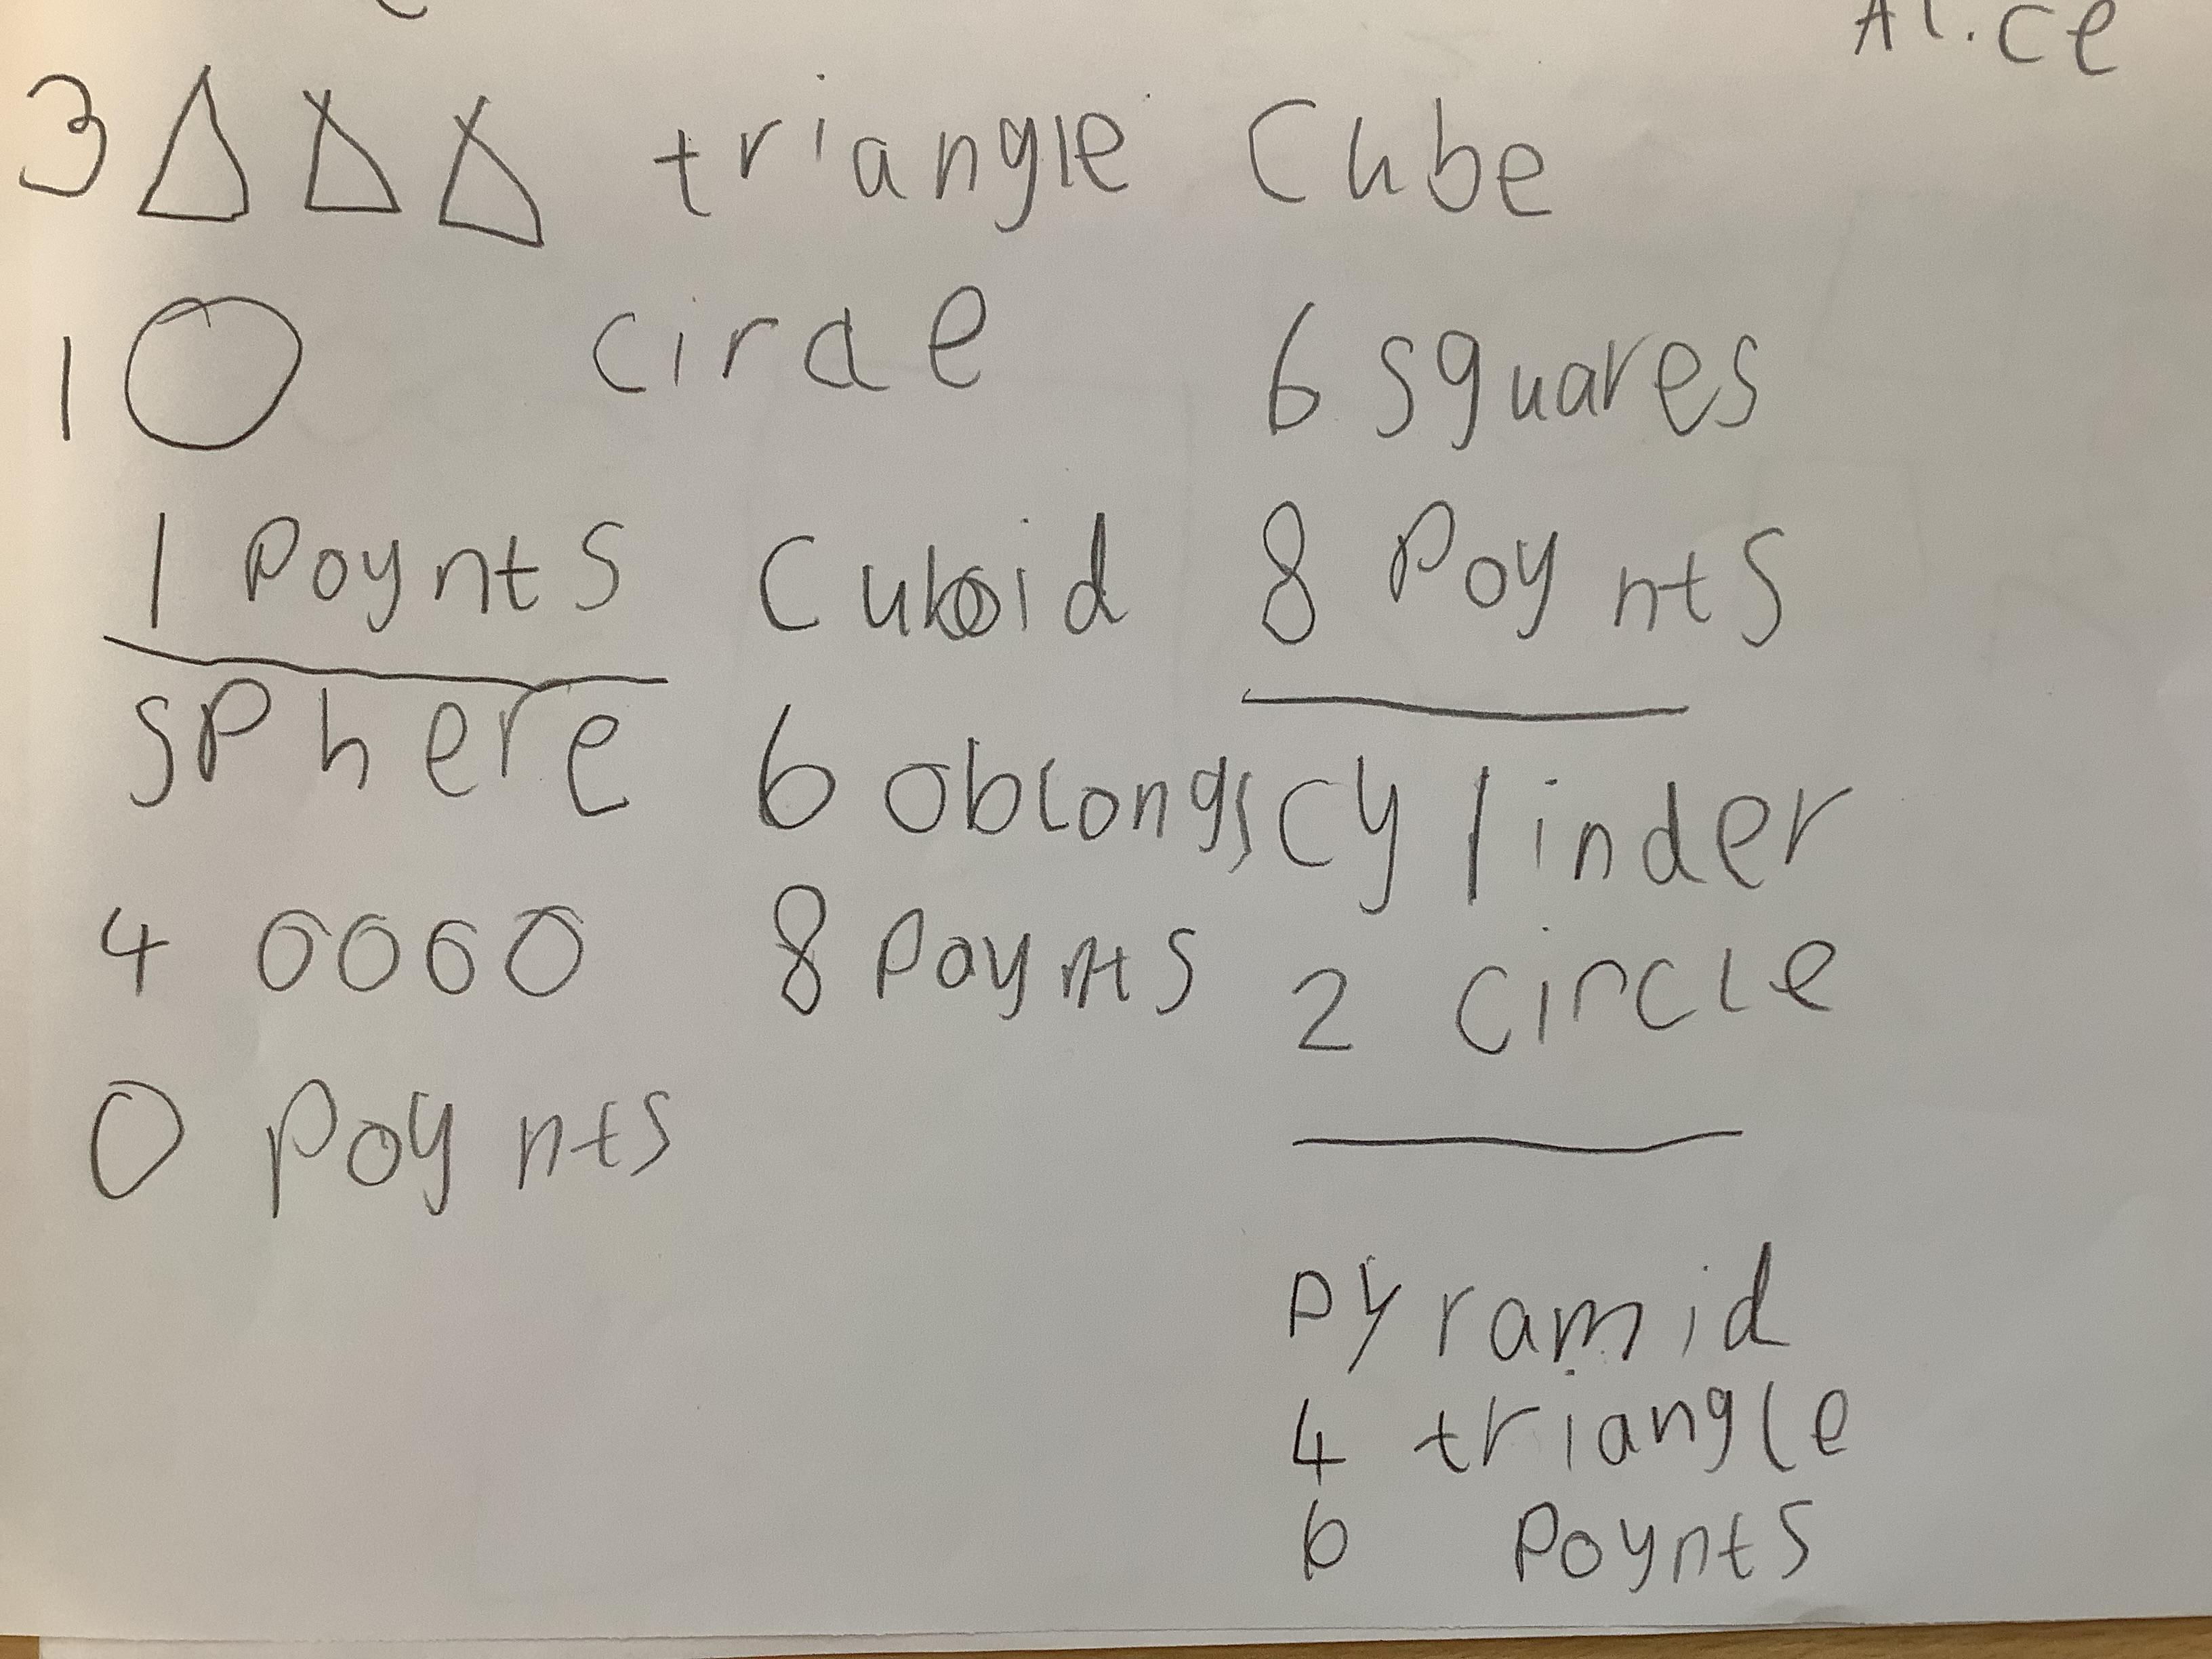 Alice
3 triangle
1 circle
1 Poynts
sphere
4 0000
0 poynts
Cuboid
6 oblongs
8 Poynts
Cube
6 squares
8 Poynts
cylinder
2 circle
pyramid
4 triangle
6 Poynts